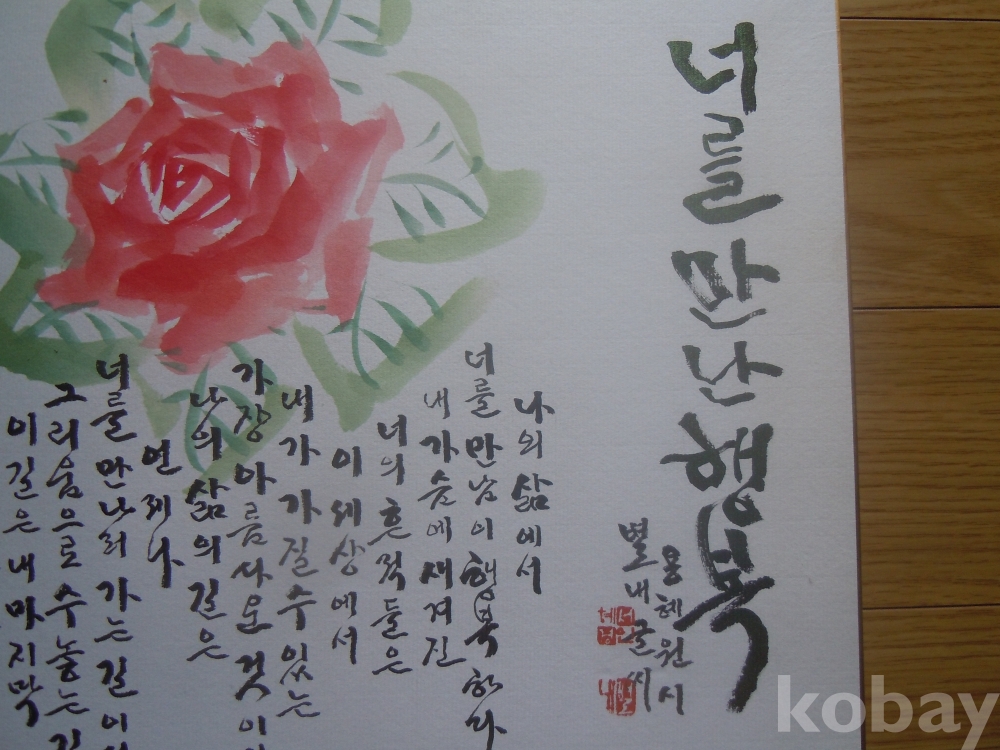 너를 만난 행복
용혜원 시
별내 글씨
나의 삶에서
너를 만남이 행복하다
내 가슴에 새겨진
너의 흔적들은
이 세상에서
내가 가질수 있는
가장 아름다운 것이
나의 삶의 길은
언제나
너를 만나러 가는 길이
그리움으로 수놓는
이 길은 내 마지막
kobay